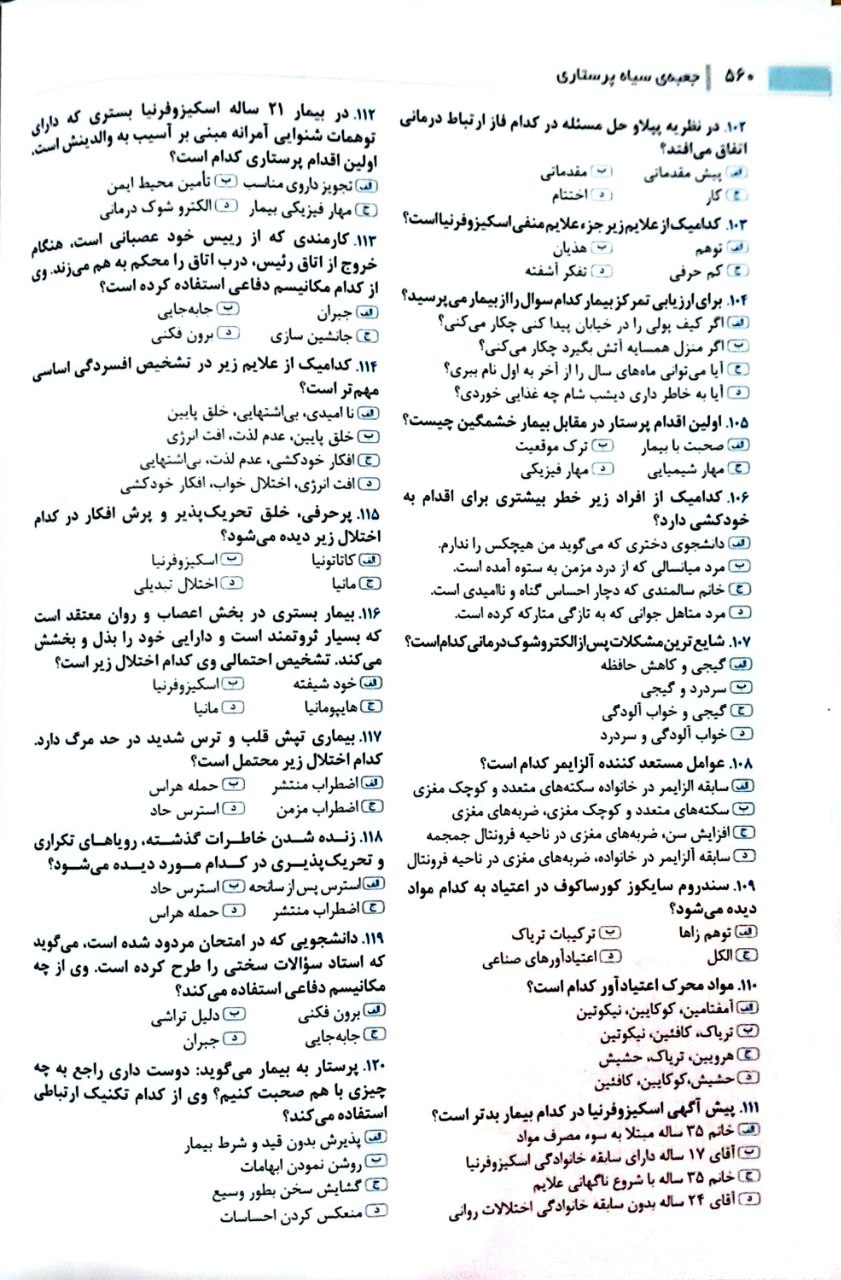 ۵۶۰ | جعبه‌ی سیاه پرستاری
۱۰۲. در نظریه پپلاو حل مسئله در کدام فاز ارتباط درمانی
اتفاق می‌افتد؟
الف پیش مقدماتی ب مقدماتی
ج کار د اختتام
۱۰۳. کدامیک از علایم زیر جزء علایم منفی اسکیزوفرنیا است؟
الف توهم ب هذیان
ج کم حرفی د تفکر آشفته
۱۰۴. برای ارزیابی تمرکز بیمار کدام سوال را از بیمار می‌پرسید؟
الف اگر کیف پولی را در خیابان پیدا کنی چکار می‌کنی؟
ب اگر منزل همسایه آتش بگیرد چکار می‌کنی؟
ج آیا می‌توانی ماه‌های سال را از آخر به اول نام ببری؟
د آیا به خاطر داری دیشب شام چه غذایی خوردی؟
۱۰۵. اولین اقدام پرستار در مقابل بیمار خشمگین چیست؟
الف صحبت با بیمار ب ترک موقعیت
ج مهار شیمیایی د مهار فیزیکی
۱۰۶. کدامیک از افراد زیر خطر بیشتری برای اقدام به
خودکشی دارد؟
الف دانشجوی دختری که می‌گوید من هیچکس را ندارم.
ب مرد میانسالی که از درد مزمن به ستوه آمده است.
ج خانم سالمندی که دچار احساس گناه و ناامیدی است.
د مرد متاهل جوانی که به تازگی متارکه کرده است.
۱۰۷. شایع ترین مشکلات پس از الکترو شوک درمانی کدام است؟
الف گیجی و کاهش حافظه
ب سردرد و گیجی
ج گیجی و خواب آلودگی
د خواب آلودگی و سردرد
۱۰۸. عوامل مستعد کننده آلزایمر کدام است؟
الف سابقه الزایمر در خانواده سکته‌های متعدد و کوچک مغزی
ب سکته‌های متعدد و کوچک مغزی، ضربه‌های مغزی
ج افزایش سن، ضربه‌های مغزی در ناحیه فرونتال جمجمه
د سابقه آلزایمر در خانواده، ضربه‌های مغزی در ناحیه فرونتال
۱۰۹. سندروم سایکوز کورساکوف در اعتیاد به کدام مواد
دیده می‌شود؟
الف توهم زاها ب ترکیبات تریاک
ج الکل د اعتیادآورهای صناعی
۱۱۰. مواد محرک اعتیادآور کدام است؟
الف آمفتامین، کوکایین، نیکوتین
ب تریاک، کافئین، نیکوتین
ج هرویین، تریاک، حشیش
د حشیش،کوکایین، کافئین
۱۱۱. پیش آگهی اسکیزوفرنیا در کدام بیمار بدتر است؟
الف خانم ۳۵ ساله مبتلا به سوء مصرف مواد
ب آقای ۱۷ ساله دارای سابقه خانوادگی اسکیزوفرنیا
ج خانم ۳۵ ساله با شروع ناگهانی علایم
د آقای ۲۴ ساله بدون سابقه خانوادگی اختلالات روانی
۱۱۲. در بیمار ۲۱ ساله اسکیزوفرنیا بستری که دارای
توهمات شنوایی آمرانه مبنی بر آسیب به والدینش است.
اولین اقدام پرستاری کدام است؟
الف تجویز داروی مناسب ب تأمین محیط ایمن
ج مهار فیزیکی بیمار د الکترو شوک درمانی
۱۱۳. کارمندی که از رییس خود عصبانی است، هنگام
خروج از اتاق رئیس، درب اتاق را محکم به هم می‌زند. وی
از کدام مکانیسم دفاعی استفاده کرده است؟
الف جبران ب جابه‌جایی
ج جانشین سازی د برون فکنی
۱۱۴. کدامیک از علایم زیر در تشخیص افسردگی اساسی
مهم‌تر است؟
الف نا امیدی، بی‌اشتهایی، خلق پایین
ب خلق پایین، عدم لذت، افت انرژی
ج افکار خودکشی، عدم لذت، بی‌اشتهایی
د افت انرژی، اختلال خواب، افکار خودکشی
۱۱۵. پرحرفی، خلق تحریک‌پذیر و پرش افکار در کدام
اختلال زیر دیده می‌شود؟
الف کاتاتونیا ب اسکیزوفرنیا
ج مانیا د اختلال تبدیلی
۱۱۶. بیمار بستری در بخش اعصاب و روان معتقد است
که بسیار ثروتمند است و دارایی خود را بذل و بخشش
می‌کند. تشخیص احتمالی وی کدام اختلال زیر است؟
الف خود شیفته ب اسکیزوفرنیا
ج هایپومانیا د مانیا
۱۱۷. بیماری تپش قلب و ترس شدید در حد مرگ دارد.
کدام اختلال زیر محتمل است؟
الف اضطراب منتشر ب حمله هراس
ج اضطراب مزمن د استرس حاد
۱۱۸. زنده شدن خاطرات گذشته، رویاهای تکراری
و تحریک‌پذیری در کدام مورد دیده می‌شود؟
الف استرس پس از سانحه ب استرس حاد
ج اضطراب منتشر د حمله هراس
۱۱۹. دانشجویی که در امتحان مردود شده است، می‌گوید
که استاد سؤالات سختی را طرح کرده است. وی از چه
مکانیسم دفاعی استفاده می‌کند؟
الف برون فکنی ب دلیل تراشی
ج جابه‌جایی د جبران
۱۲۰. پرستار به بیمار می‌گوید: دوست داری راجع به چه
چیزی با هم صحبت کنیم؟ وی از کدام تکنیک ارتباطی
استفاده می‌کند؟
الف پذیرش بدون قید و شرط بیمار
ب روشن نمودن ابهامات
ج گشایش سخن بطور وسیع
د منعکس کردن احساسات